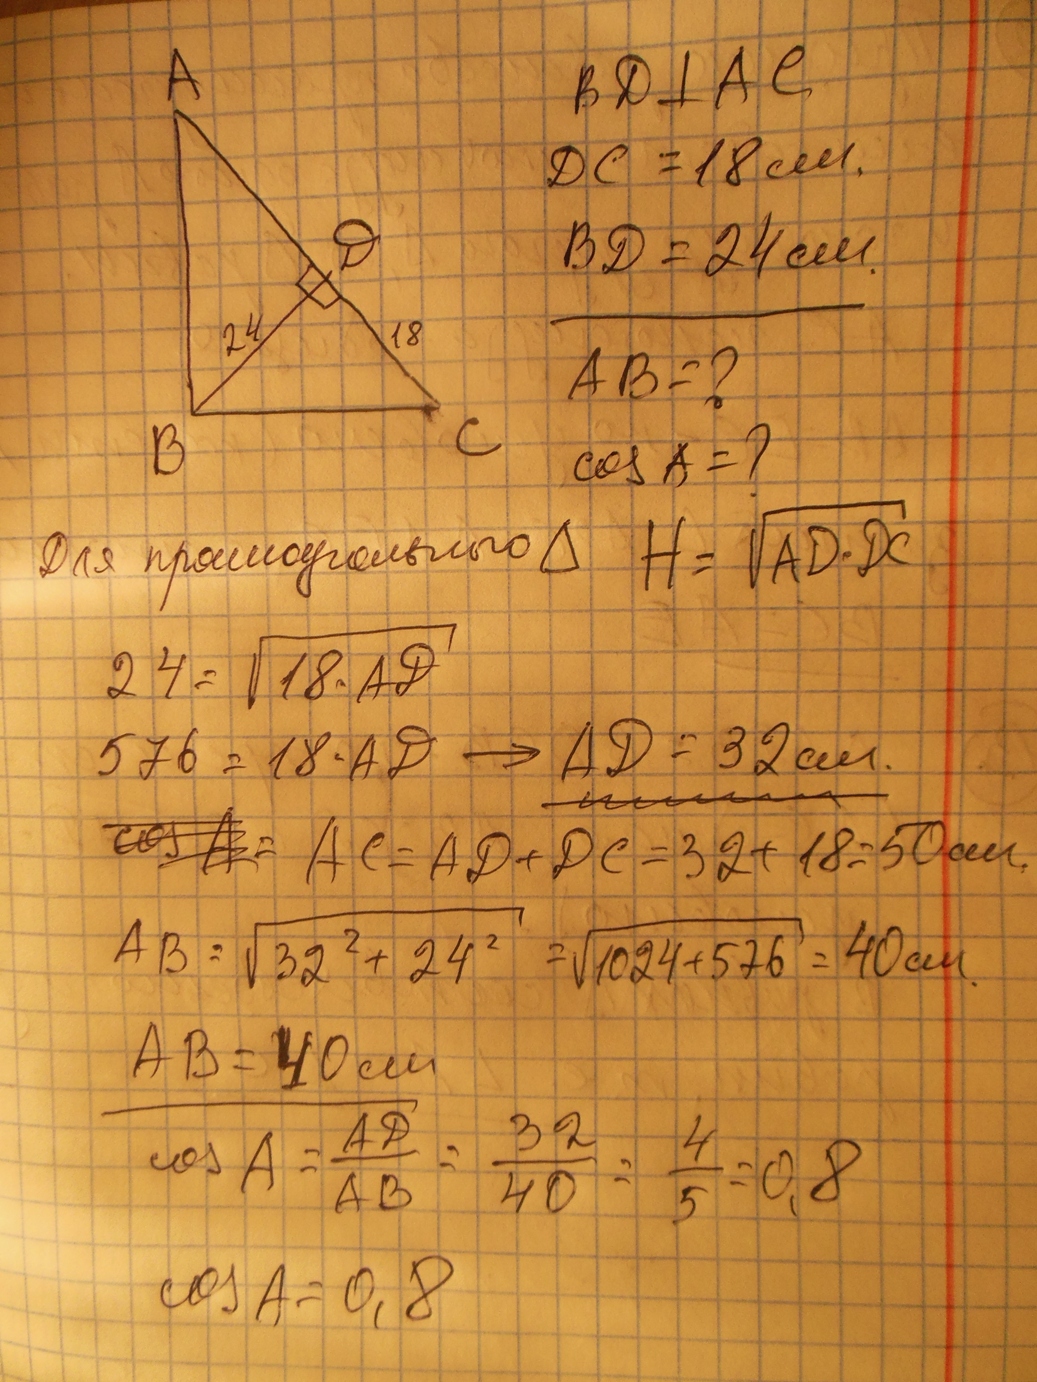 A
BD⊥AC
DC = 18 см.
D
BD = 24 см.
24
18
AB = ?
B
C
cos A = ?
Для прямоугольного Δ H = √AD·DC
24 = √18·AD
576 = 18·AD → AD = 32 см.
cos A = AC = AD + DC = 32 + 18 = 50 см.
AB = √32² + 24² = √1024 + 576 = 40 см.
AB = 40 см
cos A = AD/AB = 32/40 = 4/5 = 0,8
cos A = 0,8